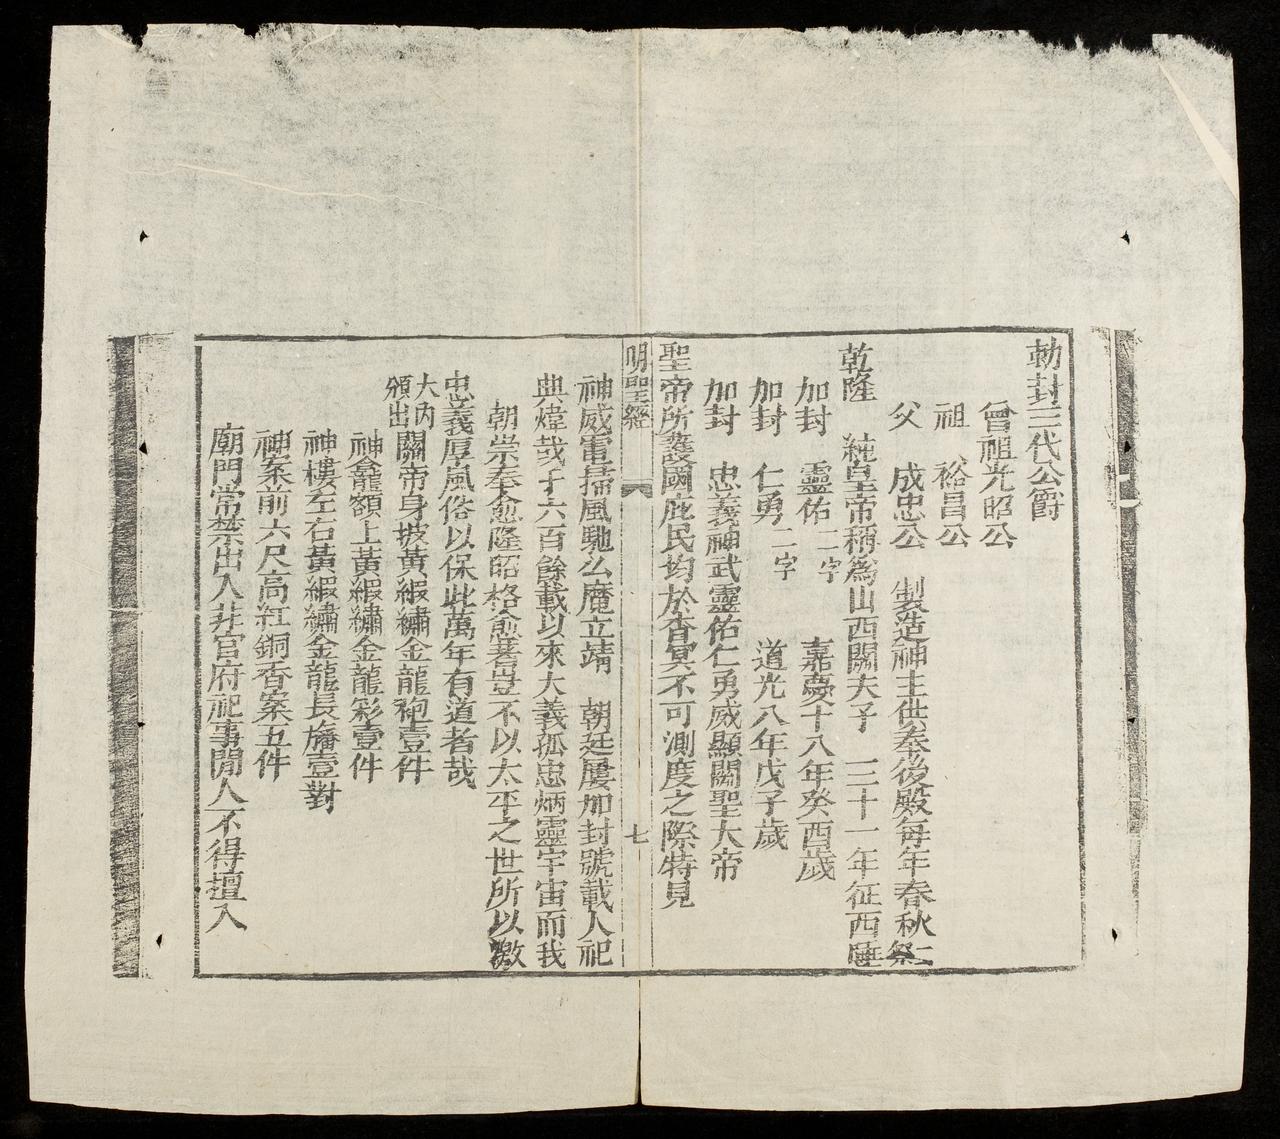 勅封三代公爵
曾祖光昭公
祖　裕昌公
父　成忠公　製造神主供奉後殿每年春秋二祭
乾隆　純皇帝稱爲山西關夫子　三十一年征西陲
加封　靈佑二字　嘉慶十八年癸酉歲
加封　仁勇二字　道光八年戊子歲
加封　忠義神武靈佑仁勇威顯關聖大帝
聖帝所護國庇民均於杳冥不可測度之際特見
明聖經　七
神威雷掃風馳么魔立靖　朝廷屢加封號載入祀
典煒哉千六百餘載以來大義孤忠炳靈宇宙而我
朝崇奉愈隆昭格愈著豈不以太平之世所以激
忠義厚風俗以保此萬年有道者哉
大內頒出關帝身披黃緞繡金龍袍壹件
神龕額上黃緞繡金龍彩壹件
神樓左右黃緞繡金龍長旛壹對
神案前六尺高紅銅香案五件
廟門常禁出入非官府祀事閒人不得擅入